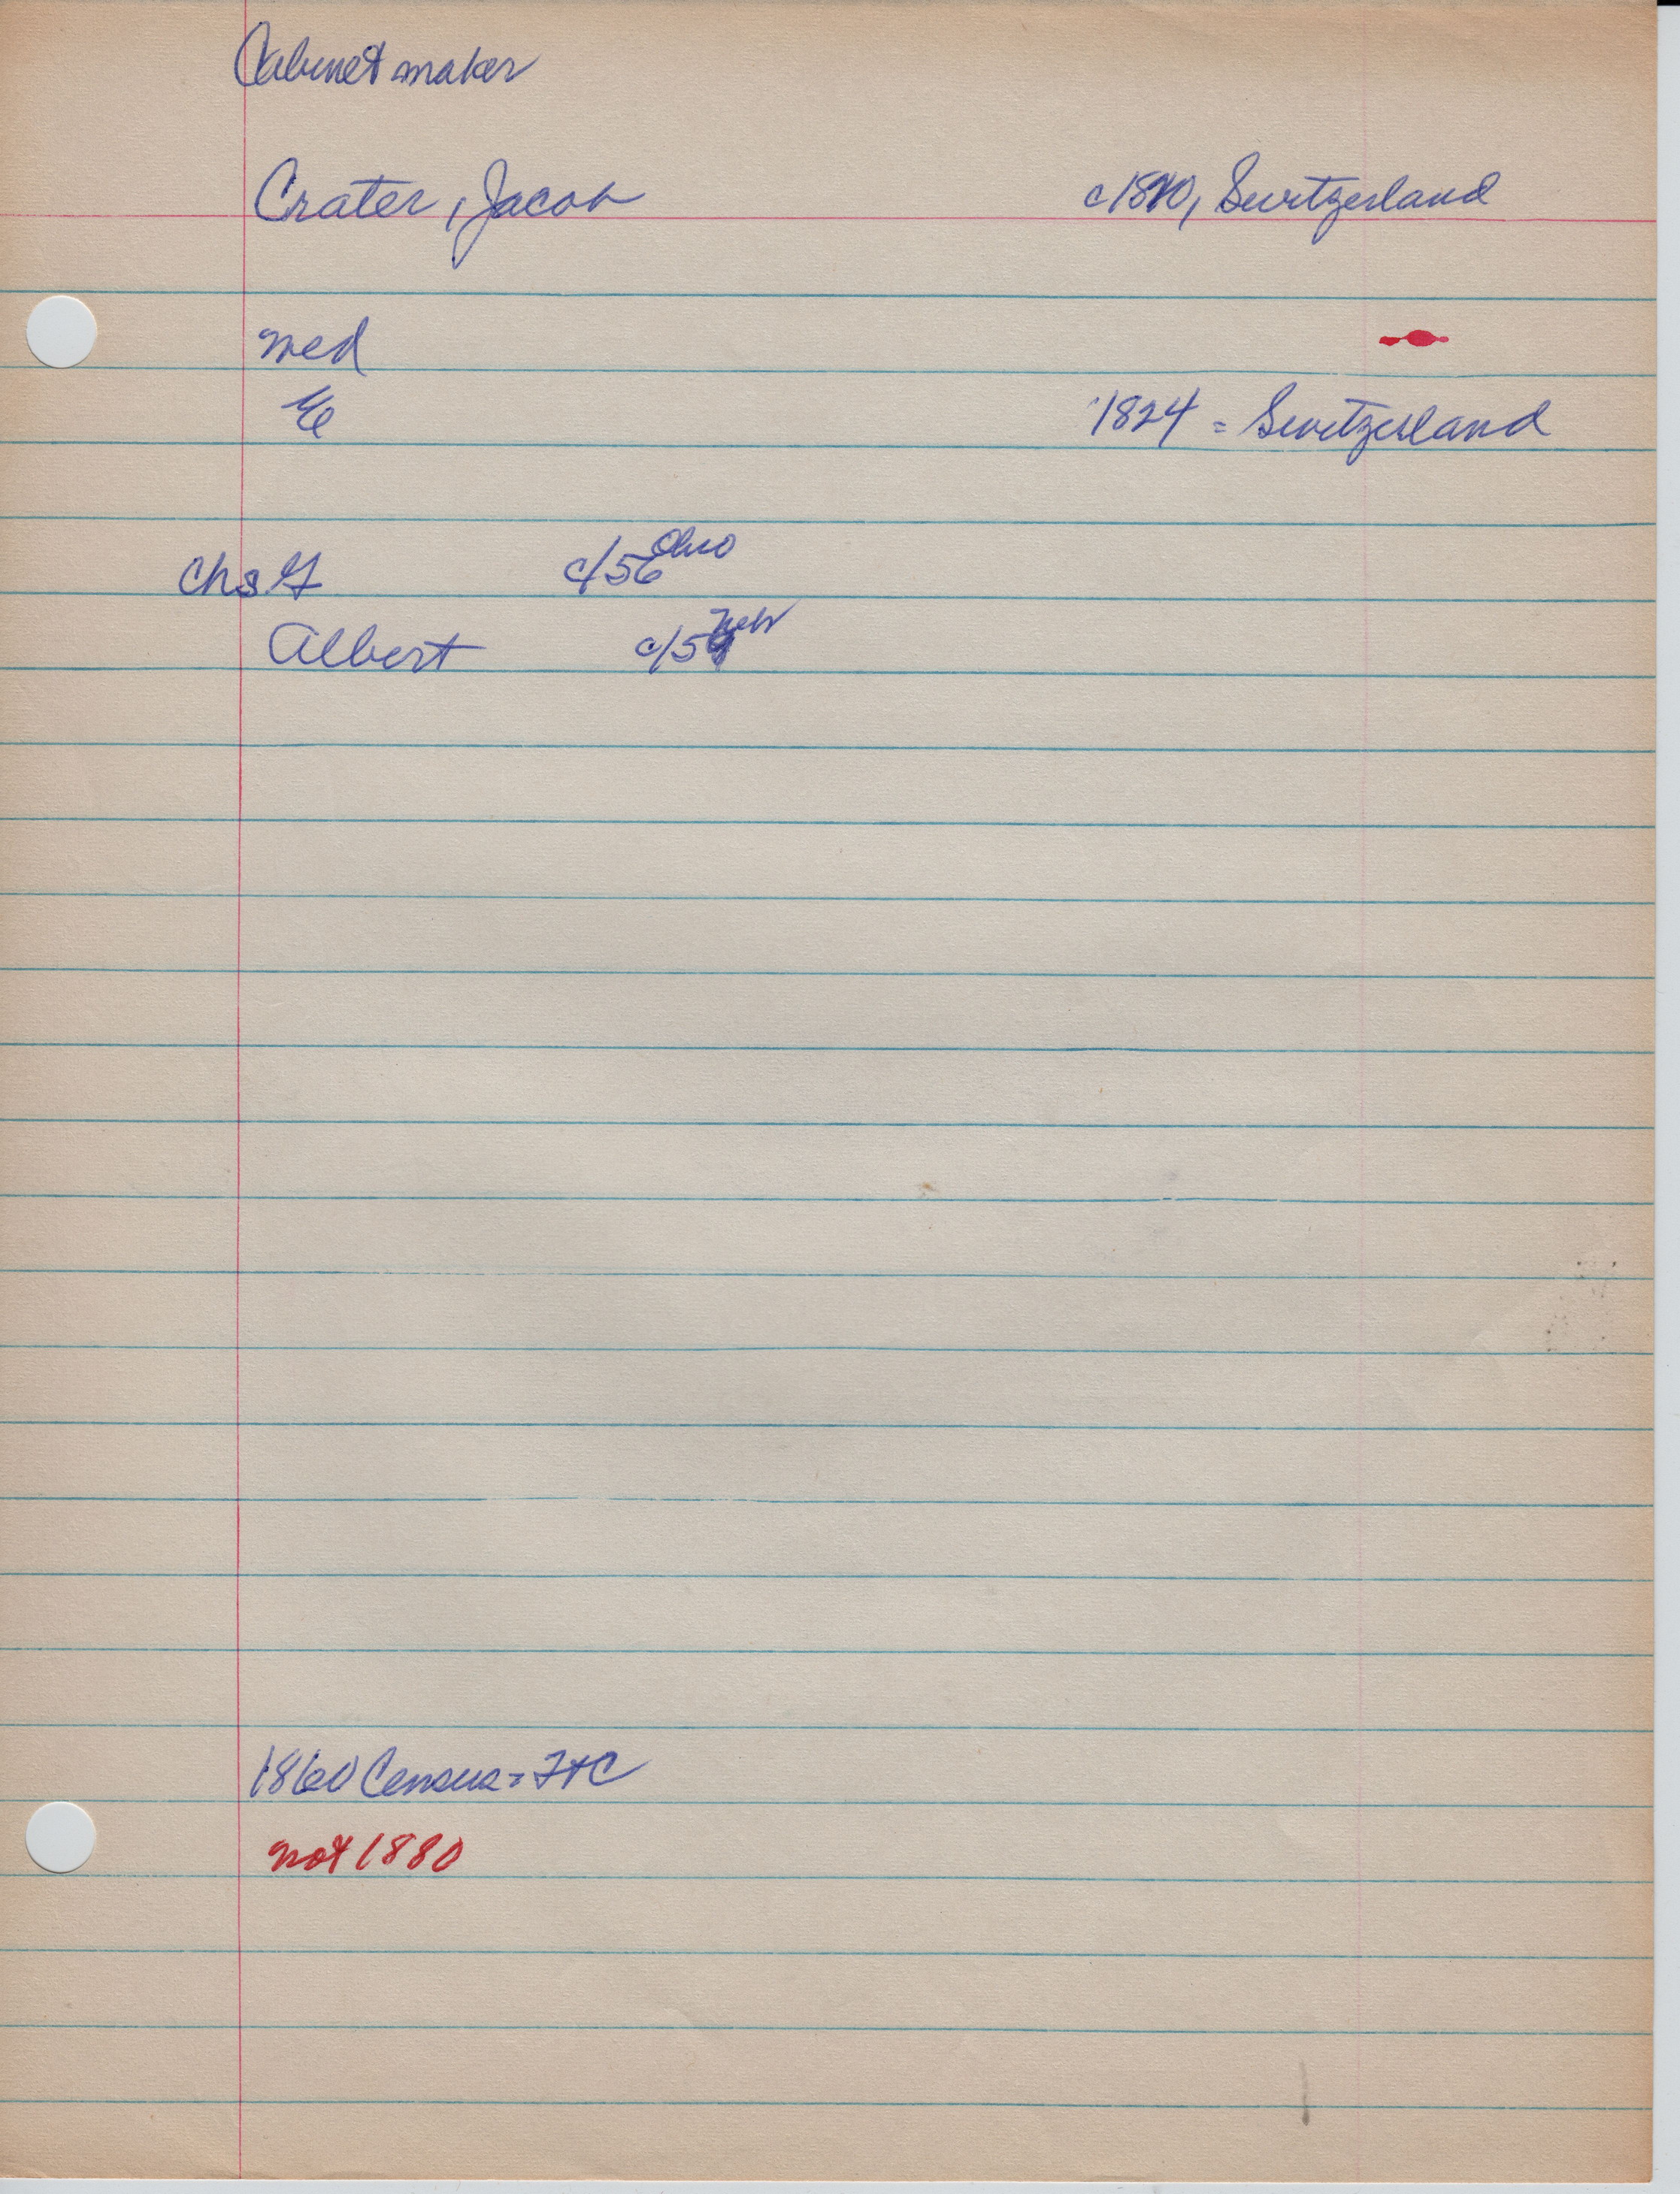 Cabinet maker
Crater, Jacob c1820, Switzerland
med
E
1824 = Switzerland
Chs G c/56 Ohio
Albert c/59 Neb
1860 Census = F+C
not 1880